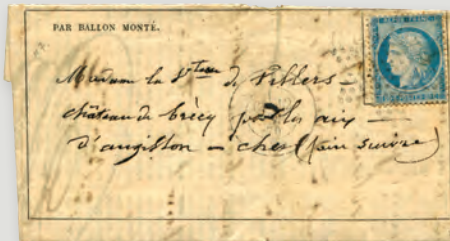 PAR BALLON MONTÉ.
REPUB. FRANC.
Madame la Vtesse de Villers
château de brécy par les aix
d'angillon — cher (faire suivre)